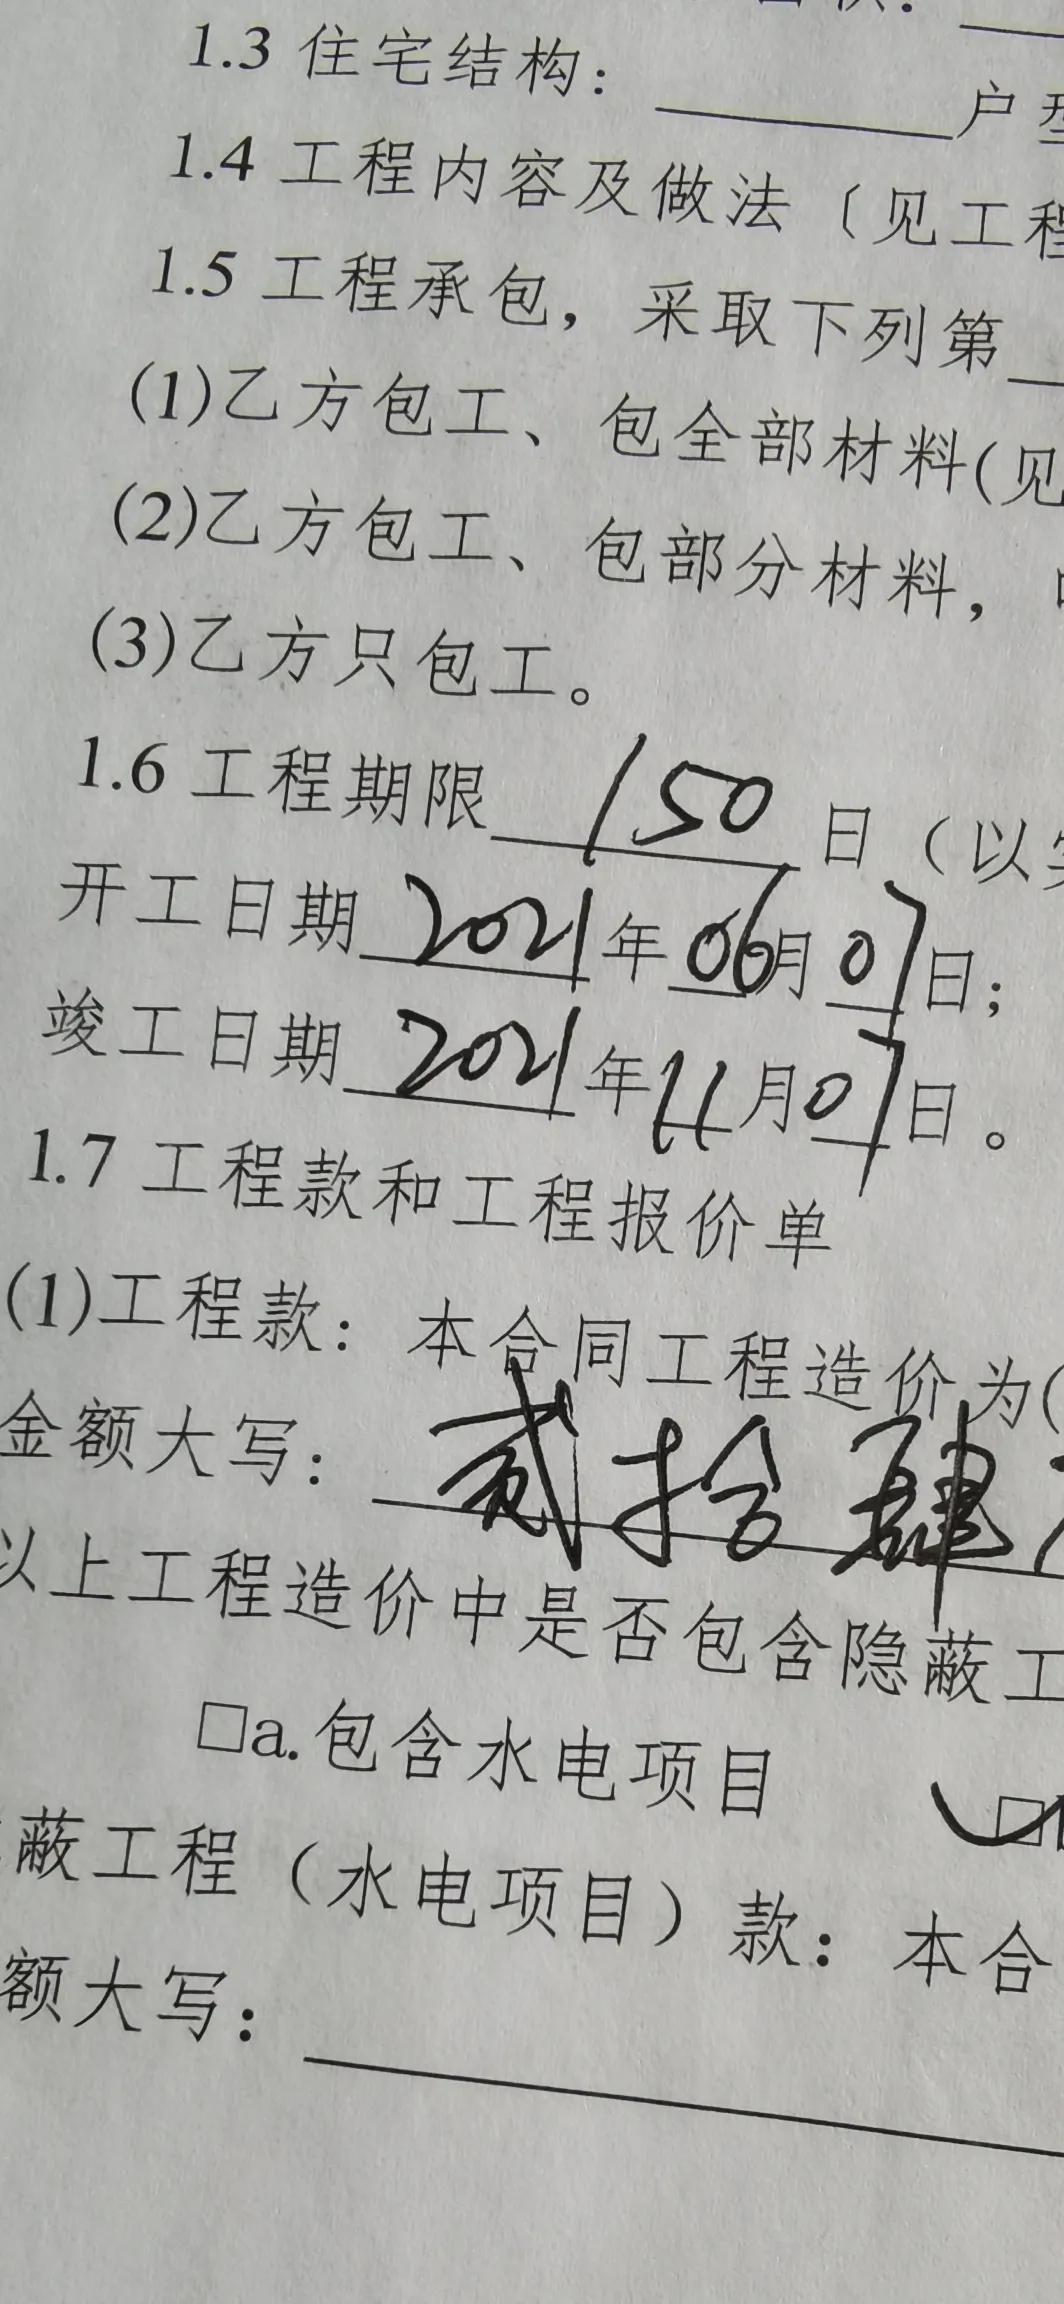 1.3 住宅结构：________户型
1.4 工程内容及做法〔见工程
1.5 工程承包，采取下列第
(1)乙方包工、包全部材料(见
(2)乙方包工、包部分材料，
(3)乙方只包工。
1.6 工程期限 150 日（以实
开工日期 2021 年 06 月 07 日；
竣工日期 2021 年 11 月 07 日。
1.7 工程款和工程报价单
(1)工程款：本合同工程造价为(
金额大写：贰拾肆
以上工程造价中是否包含隐蔽工
□a.包含水电项目 □
蔽工程（水电项目）款：本合
额大写：